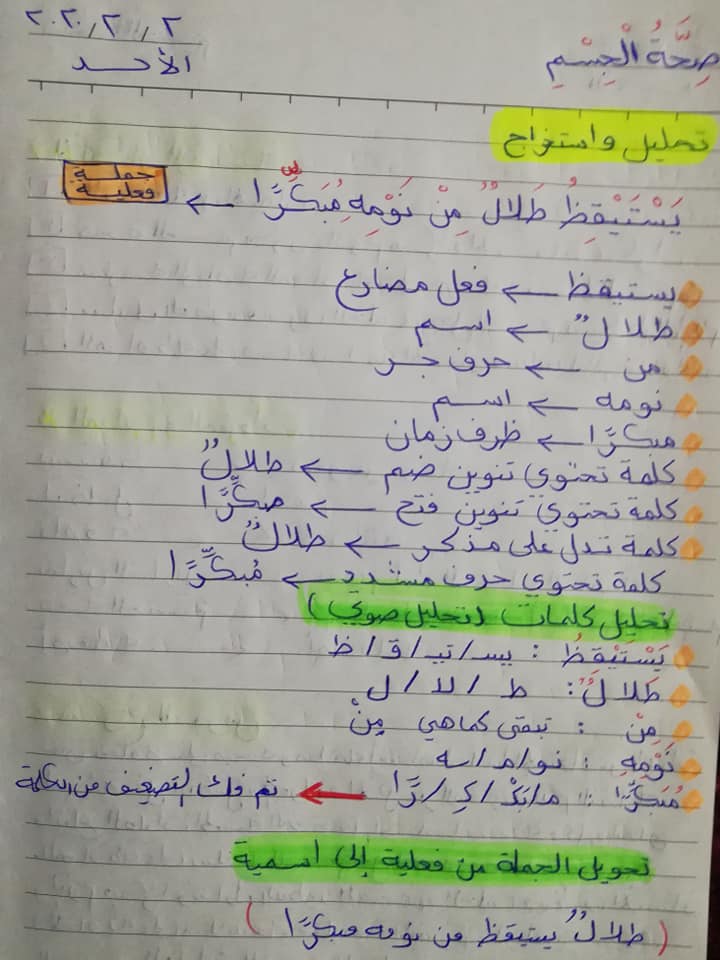 ٢٠٢٠/٢/٢
صِحَّةُ الْجِسْمِ
الأحد
تحليل واستخراج
يَسْتَيْقِظُ طَلَالٌ مِنْ نَوْمِهِ مُبَكِّرًا ← جملة فعلية
يستيقظ ← فعل مضارع
طلالٌ ← اسم
من ← حرف جر
نومه ← اسم
مبكرًا ← ظرف زمان
كلمة تحتوي تنوين ضم ← طلالٌ
كلمة تحتوي تنوين فتح ← مبكِّرًا
كلمة تدل على مذكر ← طلالٌ
كلمة تحتوي حرف مشدد ← مُبكِّرًا
تحليل كلمات (تحليل صوتي)
يَسْتَيْقِظُ : يسـ / تيـ / قـ / ظ
طَلَالٌ : ط / لا / ل
مِنْ : تبقى كما هي مِنْ
نَوْمِهِ : نو / مـ / ـه
مُبَكِّرًا : مـ / بَكْ / كِـ / رًا ← تم فك التضعيف من الكلمة
تحويل الجملة من فعلية إلى اسمية
(طلالٌ يستيقظ من نومه مبكرًا)